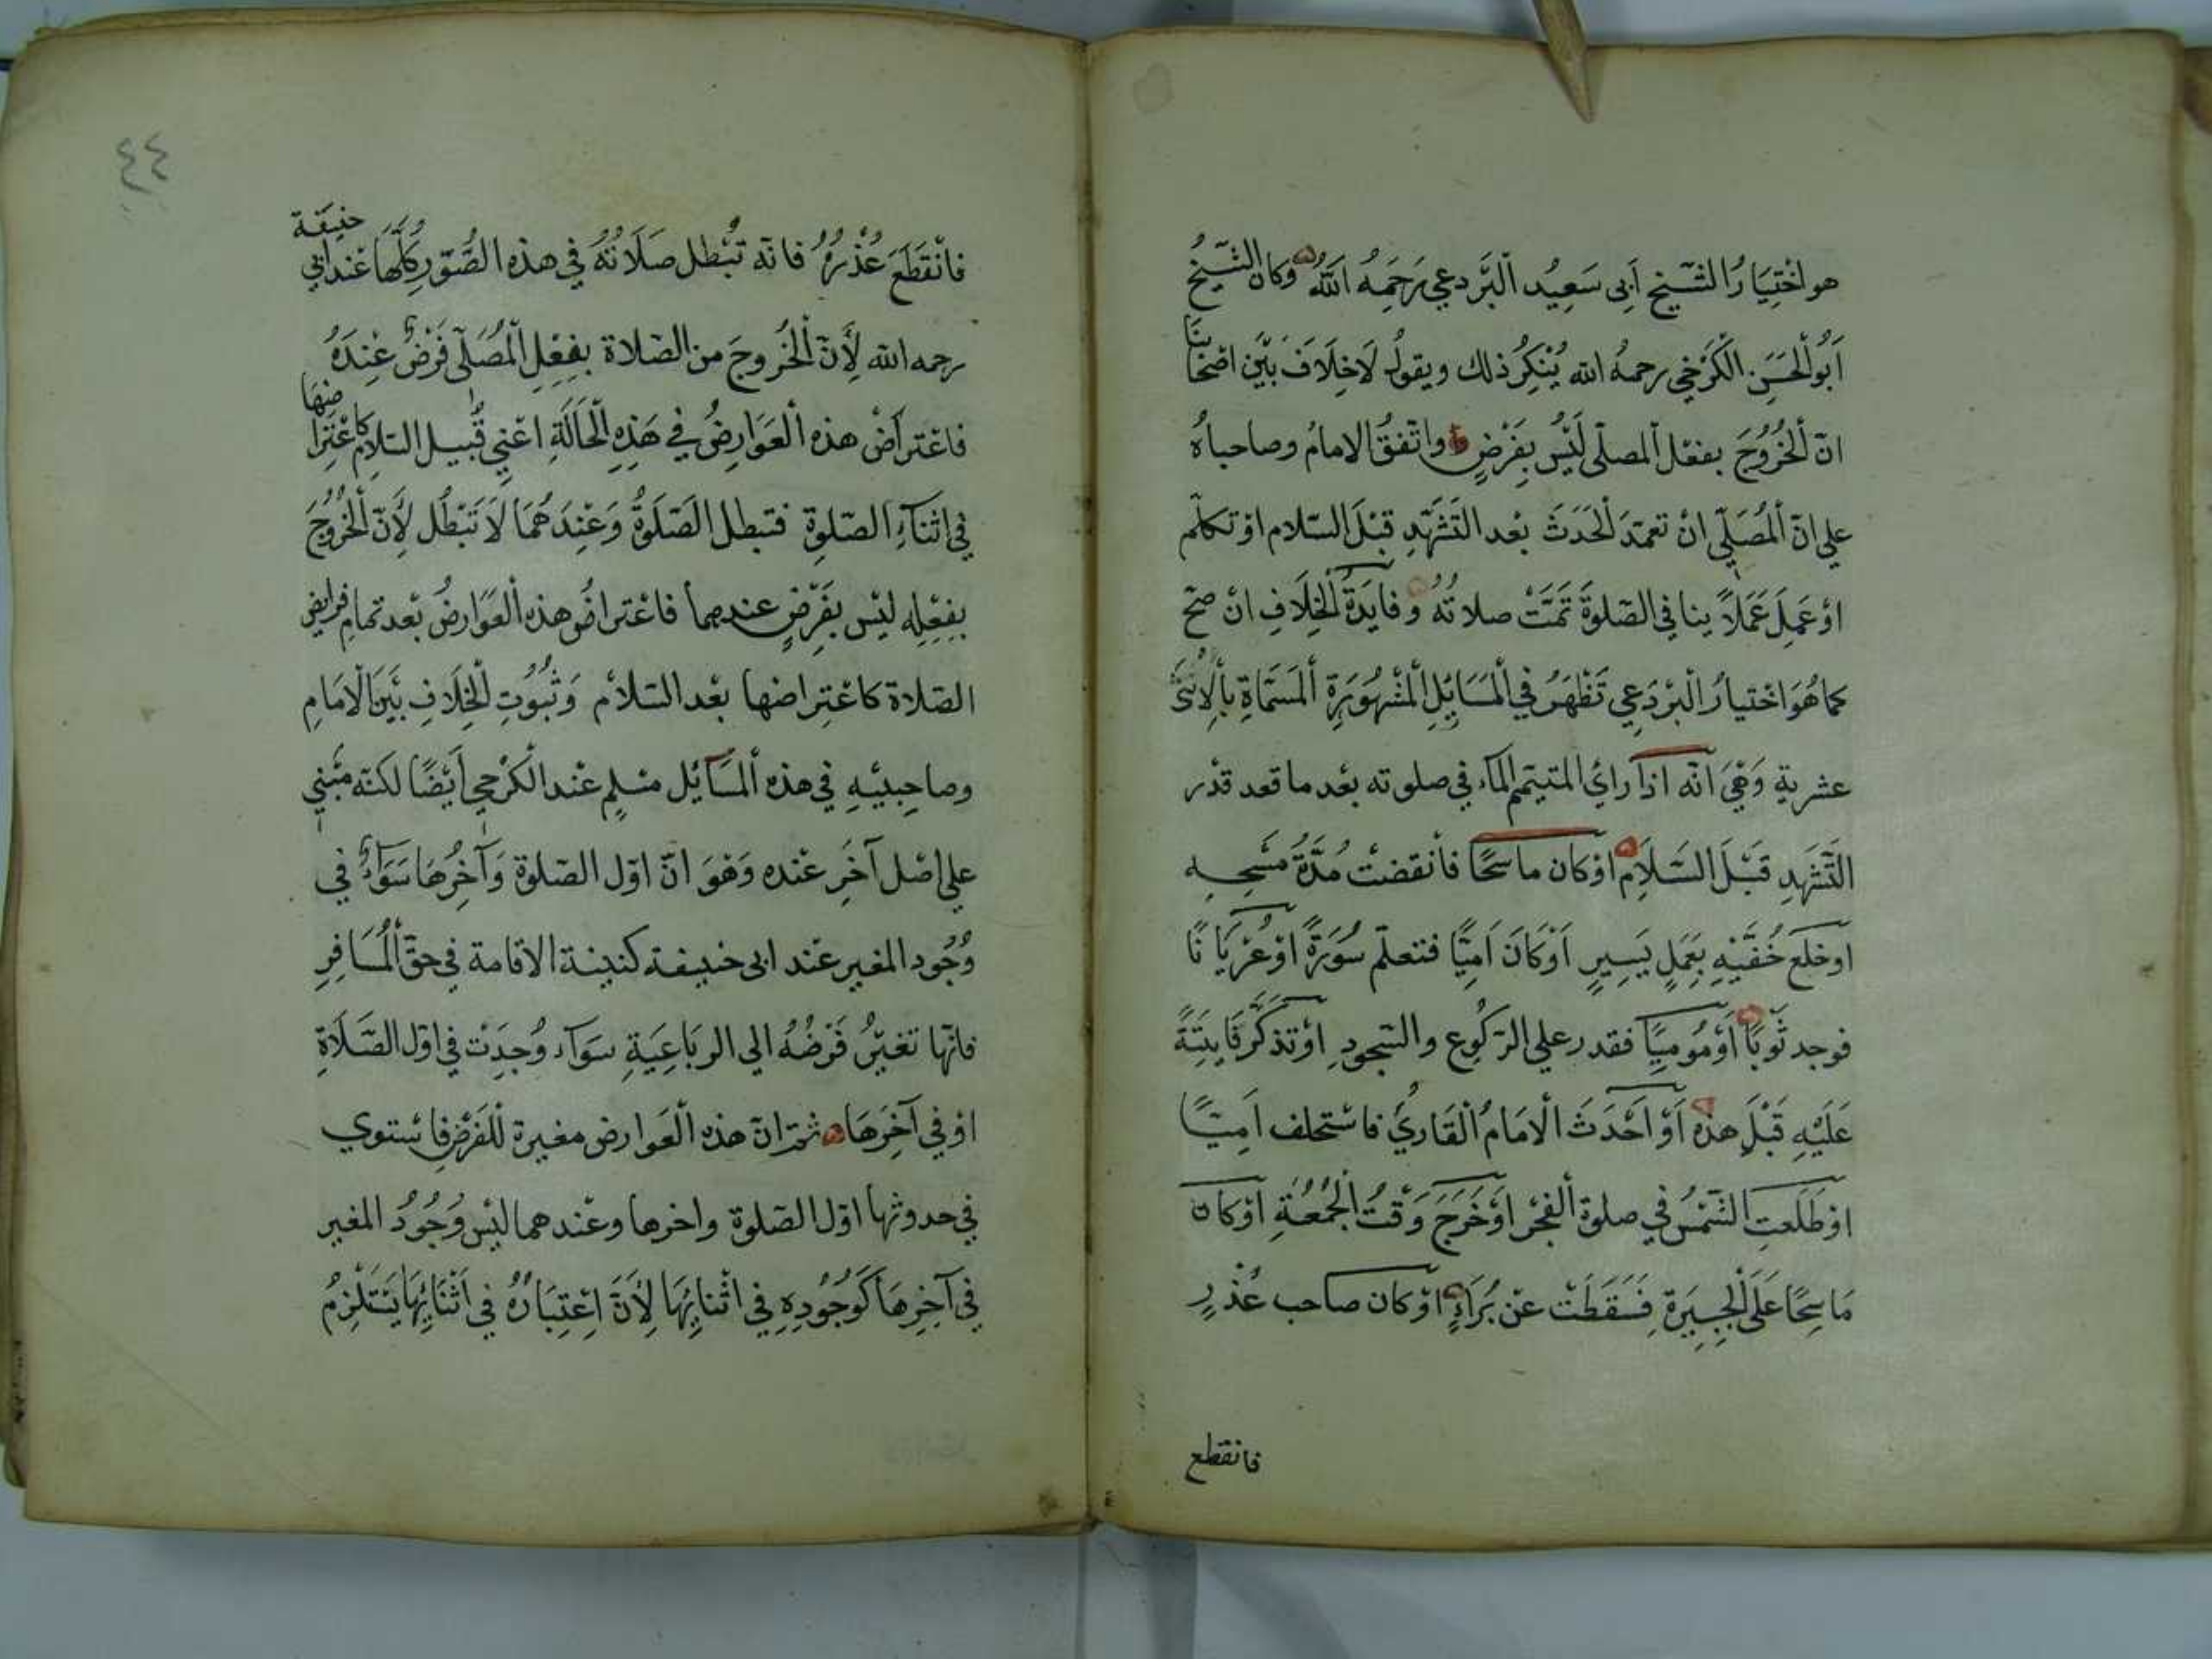 هو اخْتِيَارُ الشَّيخ اَبِى سَعِيْد اَلْبَرْدعي رَحِمَهُ اَللّٰهُ وَكان الشَّيخ
اَبُو الْحَسَنِ الْكَرْخي رحمهُ الله يُنْكِرُ ذلك ويقولُ لَاخِلَافَ بَيْن اصْحَابنَا
انّ اْلخُرُوْجَ بفعْل المصلّى لَيْسَ بِفَرْضٍ واتّفقُ الامامُ وصاحباهُ
على انّ اْلمُصَلّي انْ تعمّدَ الْحَدَثَ بعْد التّشَهّدِ قبْلَ السّلام اوْ تكلّم
اوْ عَمِلَ عَمَلاً ينافي الصّلوةَ تمّتْ صلاتُهُ وفايَدَةُ الْخِلَافِ انْ صحّ
كما هُوَ اخْتيارُ الْبرْدَعي تَظْهَرُ في الْمَسَايِلِ الْمَشْهُورَةِ اْلمَسَمّاةِ بالْاِثْنَى
عشرية وَهِيَ انّه اذا راىُ المتيمّم الماء في صلوته بعْد ما قعد قدْر
التّشَهّدِ قَبْلَ السَّلَامِ اوْكان ماسحًا فانْقضتْ مُدّةُ مسْحِه
اوخلَع خُفّيْهِ بِعَمَلٍ يَسِيرٍ اَوْكَانَ اَمِيًّا فتعلّم سُوَرَةً اوْ عُرْيَانًا
فوجد ثَوبًا اَوْمُومِيًا فقدر على الرّكُوع والسّجود اوْتذكّر فَايتَةً
عَلَيْهِ قَبْلَ هذِه اَوْ اَحْدَثَ الْامَامُ الْقَارِيُ فاسْتخلف اَمِيًّا
اوْ طَلَعتِ الشّمْسُ في صلوة الْفجْر اوْخَرَجَ وَقْتُ الْجُمْعَةِ اوْكان
مَاسِحًا عَلَى الْجبِيَرةِ فَسَقَطَتْ عنْ بُرَاءٍ اوْكان صاحب عُذْرٍ
فانقطع
٤٤
فانْقَطَعَ عُذْرُهُ فانّه تُبْطل صَلَاتُهُ في هذه الصُّوَرِ كلّهَا عنْد ابي حنيفَة
رحمه الله لِأَنّ الْخُروجَ من الصّلاة بِفِعْلِ اْلمُصَلّى فَرْضٌ عِنْدَهُ
فاعْتراضْ هذه الْعَوَارِضُ في هَذِهِ الْحَالَةِ اعْنِي قُبَيل السّلام كاعْتِراضهَا
في اثْنَآءِ الصّلوة فتبطل الصَّلَوةُ وَعِنْدَهُمَا لَا تَبْطُل لِأَنّ الْخُروُجَ
بفِعْلِه ليْس بفَرْضٍ عندهما فاعْتراضُ هذه الْعَوَارضُ بعْد تمامِ فرايض
الصّلاة كاعْتِراضها بعْد السّلَامْ وَثُبُوتِ الْخِلَافِ بيَن الْامَامِ
وصاحِبيْهِ في هذه اْلمَسَائل مسْلم عنْد الْكَرْخي اَيْضًا لكنّه مَبْني
على اصْل آخَر عنْده وَهْوَ انّ اوّل الصّلوة وَآخِرُهَا سَوَاءُ في
وُجُود المغير عنْد ابى حنيفة كنيّة الاقامة في حقّ اْلمُسَافِرِ
فانّها تغيّرُ فَرْضُهُ الى الربَاعِيَةِ سوَآء وُجِدَتْ في اوّل الصّلَاةِ
اوْفي آخِرَهَا ثمّ انّ هذه الْعَوارض مغيرة للْفَرْضِ فاستوى
في حدوثها اوّل الصّلوة واخرها وعنْدهما ليْس وَجُودُ المغير
في آخِرِهَا كَوُجُودِهِ في اثْنايِهَا لِأَنّ اِعْتِبَارُهُ في اَثْنَايِهَا يَسْتَلْزِمُ